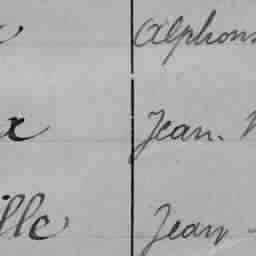 Alphons
x Jean. N
ille Jean